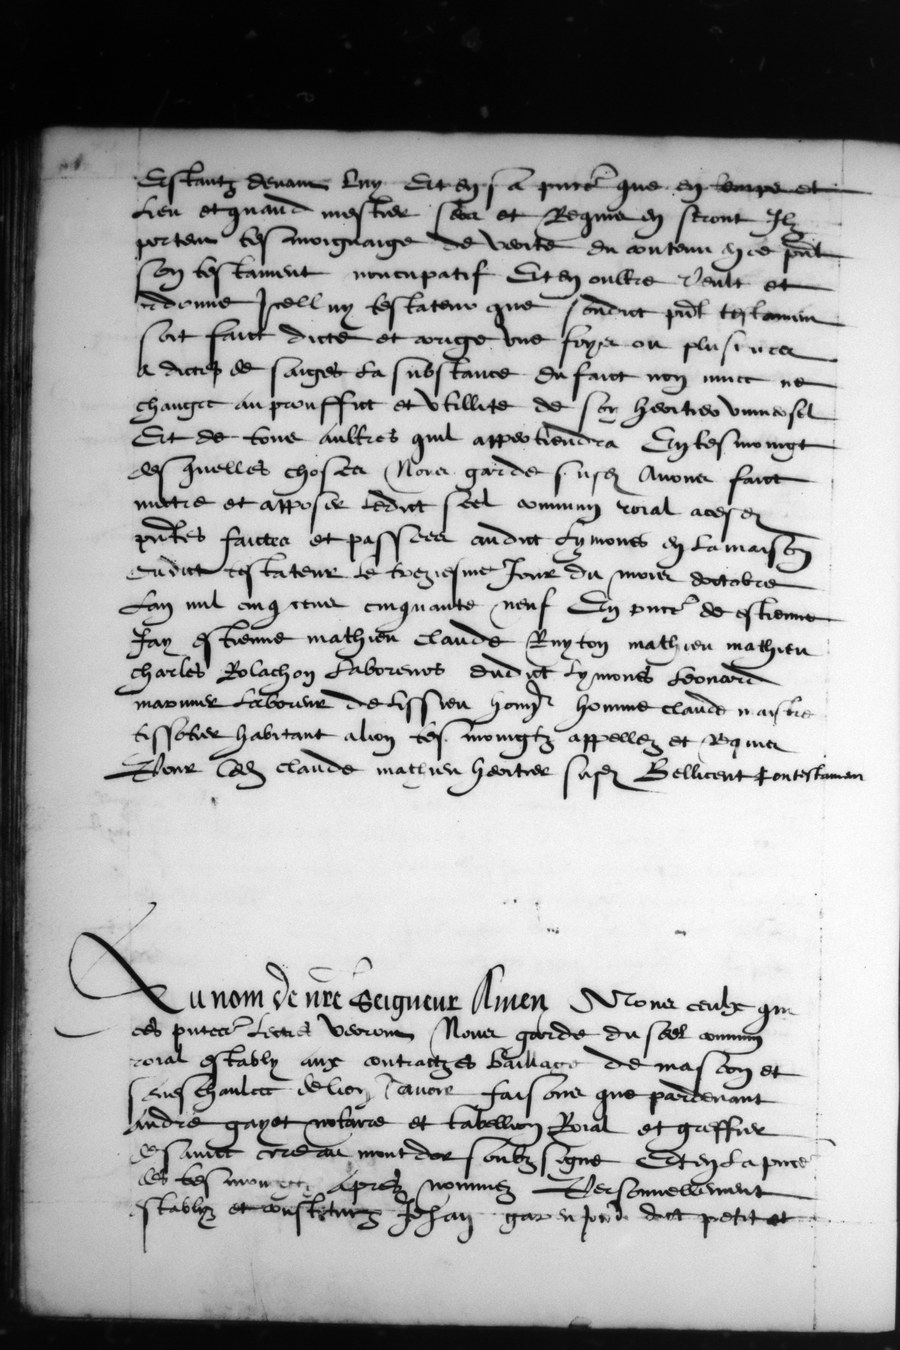 Estantz devant luy Et en sa pnce que en temps et
lieu et quand mestier sera et Requis en seront Ilz
portent tesmoignaige de verité du contenu en ce pnt
son testament noncupatif Et en oultre veult et
ordonne Icelluy testateur que sondict pnt testament
soit faict dicté et corigé une foys ou plusieurs
a dictez de saiges la substance du faict non muee ne
changee au prouffict et utillité de son heritier universel
Et de tous aultres quil appertiendra En tesmoingt
desquelles choses Nous garde susd Avons faict
mettre et apposer ledict seel commun roial a cesd
pntes faictes et passees audict Lymones en la maison
dudict testateur le trezeiesme Jour du mois doctobre
Lan mil cinq cens cinquante neuf En pnce de estienne
Fay estienne mathieu claude Ruyton mathieu mathieu
charles Rolachon Laboreurs dudict Lymones Leonard
Laboreur de Lissieu homme claude maistre
tissotier habitant a lion tesmoingtz appellez et requis
Pour led claude mathieu heritier susd
Au nom de nre Seigneur Amen A tous ceulx qui
ces pntes Lectres verront Nous garde du seel commun
roial estably aux contractz es bailliage de mascon et
seneschaulcee de lion scavoir faisons que pardevant
andre gayet notaire et tabellion Roial et greffier
au mont dor soubz signe Et en la pnce
des tesmoingtz Aprés nommez Personnellement
establyz et constituez Jehan dict petit et